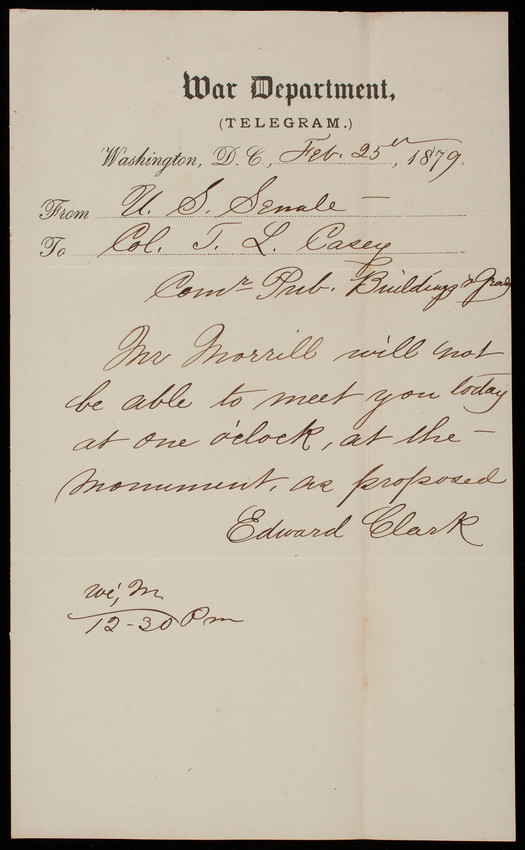 War Department,
(TELEGRAM.)
Washington, D. C., Feb. 25th, 1879.
From U. S. Senate
To Col. T. L. Casey
Comr Pub. Buildings & Grds
Mr Morrill will not
be able to meet you today
at one o'clock, at the
monument, as proposed
Edward Clark
12-30 Pm